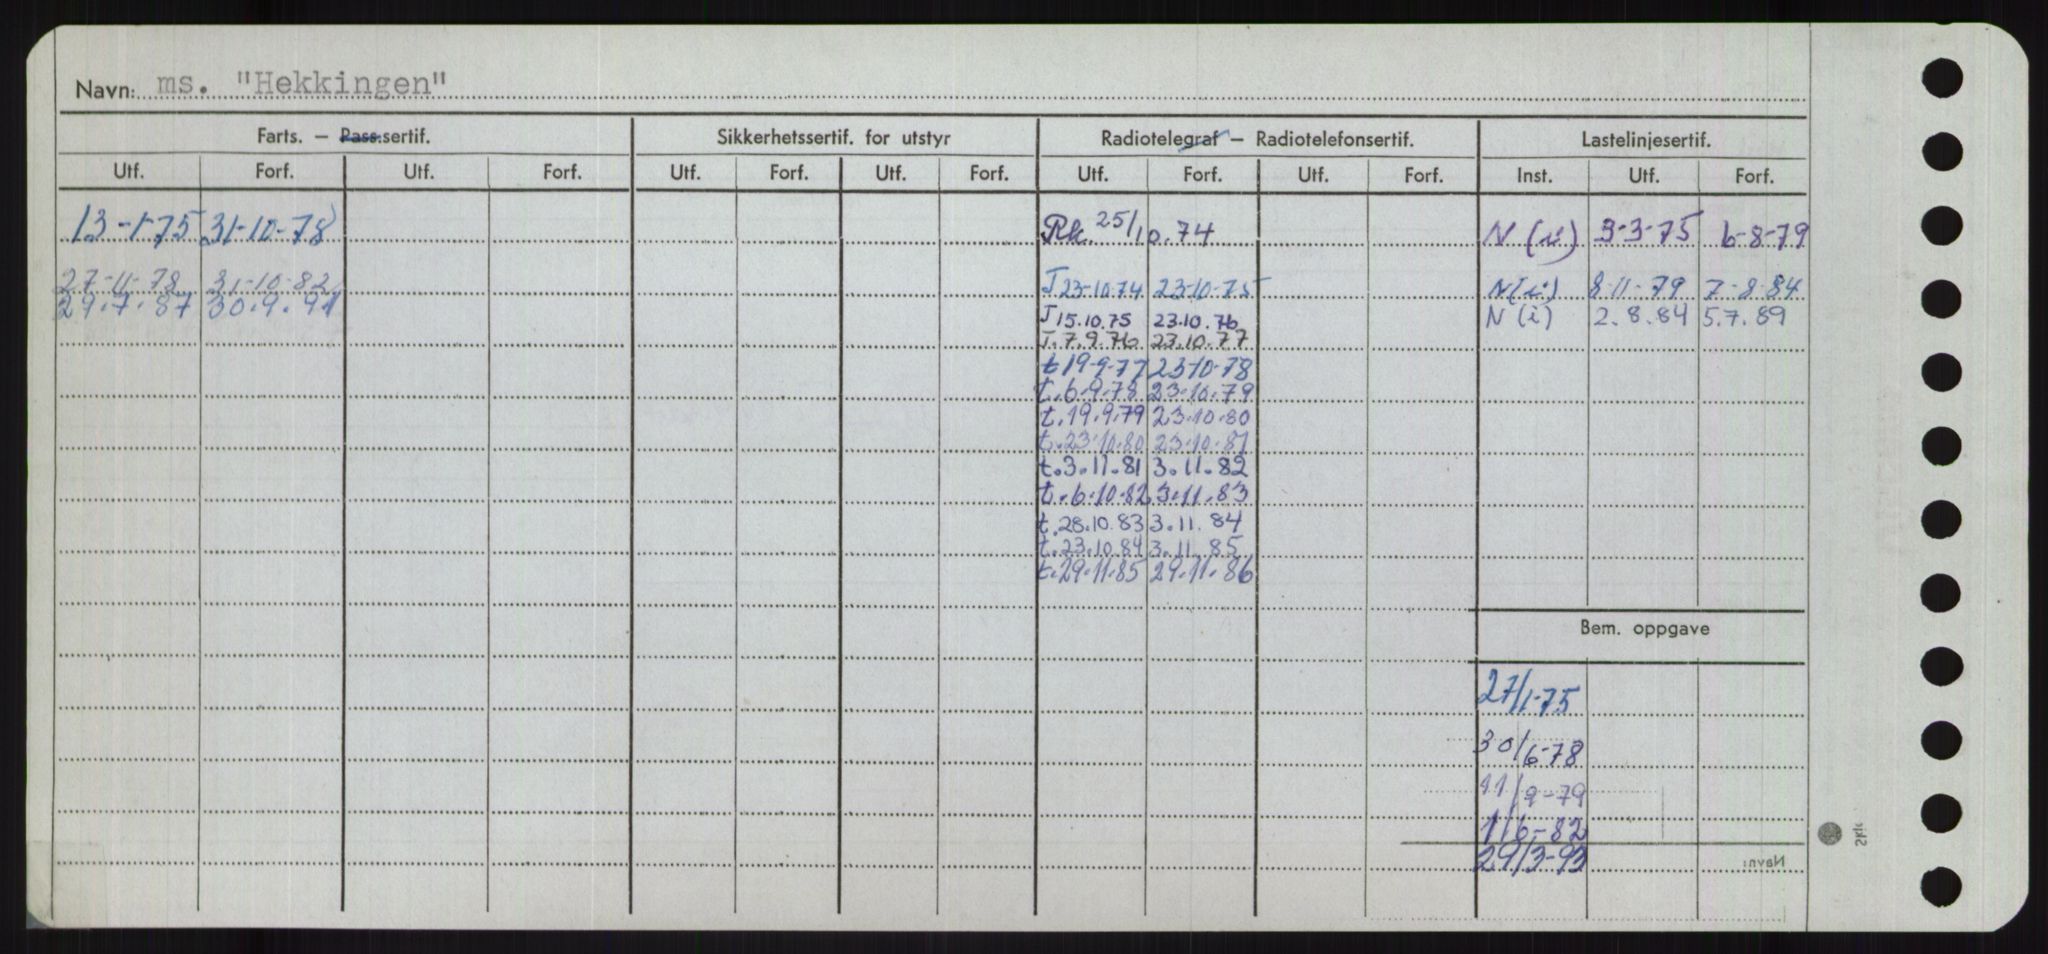 Navn: ms. "Hekkingen"
Farts. — Pass.sertif. Sikkerhetssertif. for utstyr Radiotelegraf — Radiotelefonsertif. Lastelinjesertif.
Utf. Forf. Utf. Forf. Utf. Forf. Utf. Forf. Utf. Forf. Utf. Forf. Inst. Utf. Forf.
13-1-75 31-10-78 Rk. 25/10.74 N (i) 3-3-75 6-8-79
27-11-78 31-10-82 T 23-10-74 23-10-75 N(i) 8-11-79 7-8-84
29.7.87 30.9.91 T 15.10.75 23.10.76 N (i) 2.8.84 5.7.89
T.7.9.76 23.10.77
t 19-9-77 23-10-78
t.6.9.78 23.10.79
t.19.9.79 23.10.80
t.23.10.80 23.10.81
t.3.11.81 3.11.82
t.6.10.82 3.11.83
t.28.10.83 3.11.84
t.23.10.84 3.11.85
t.29.11.85 29.11.86
Bem. oppgave
27/1-75
30/6-78
11/9-79
1/6-82
29/3-93
Navn: